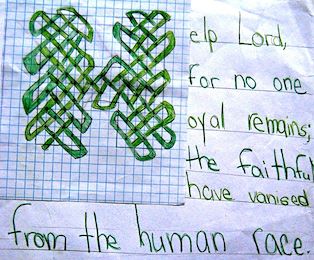 Help Lord,
for no one
oyal remains;
the faithful
have vanised
from the human race.